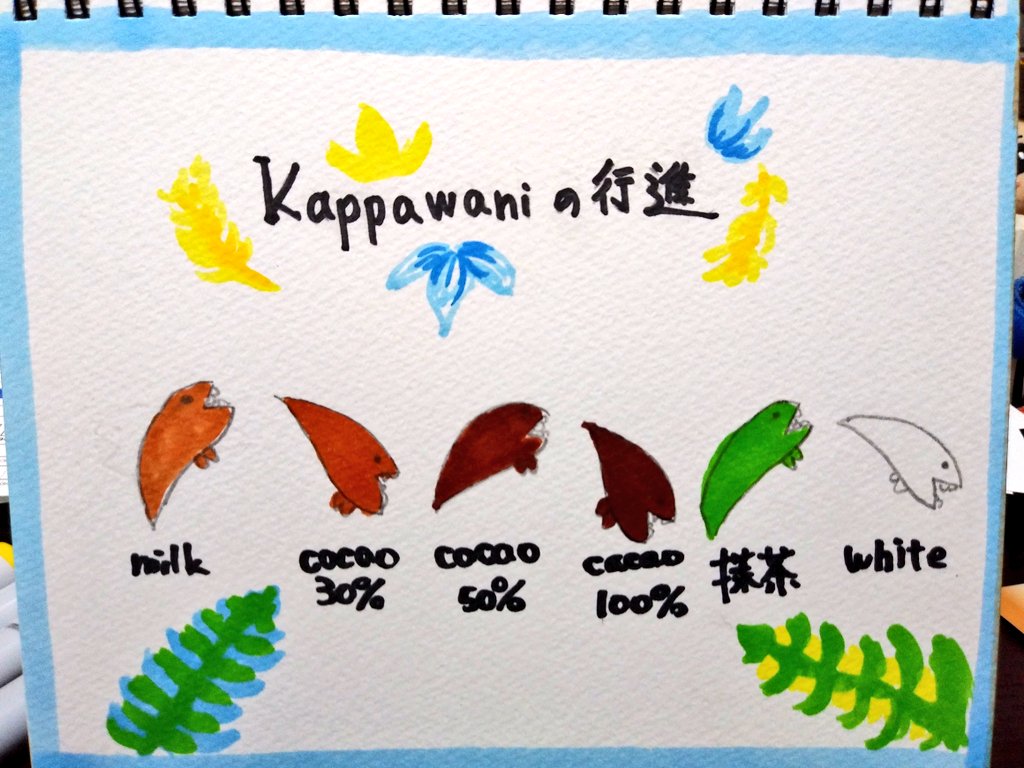 Kappawaniの行進
milk
cocao 30%
cocao 50%
cacao 100%
抹茶
white